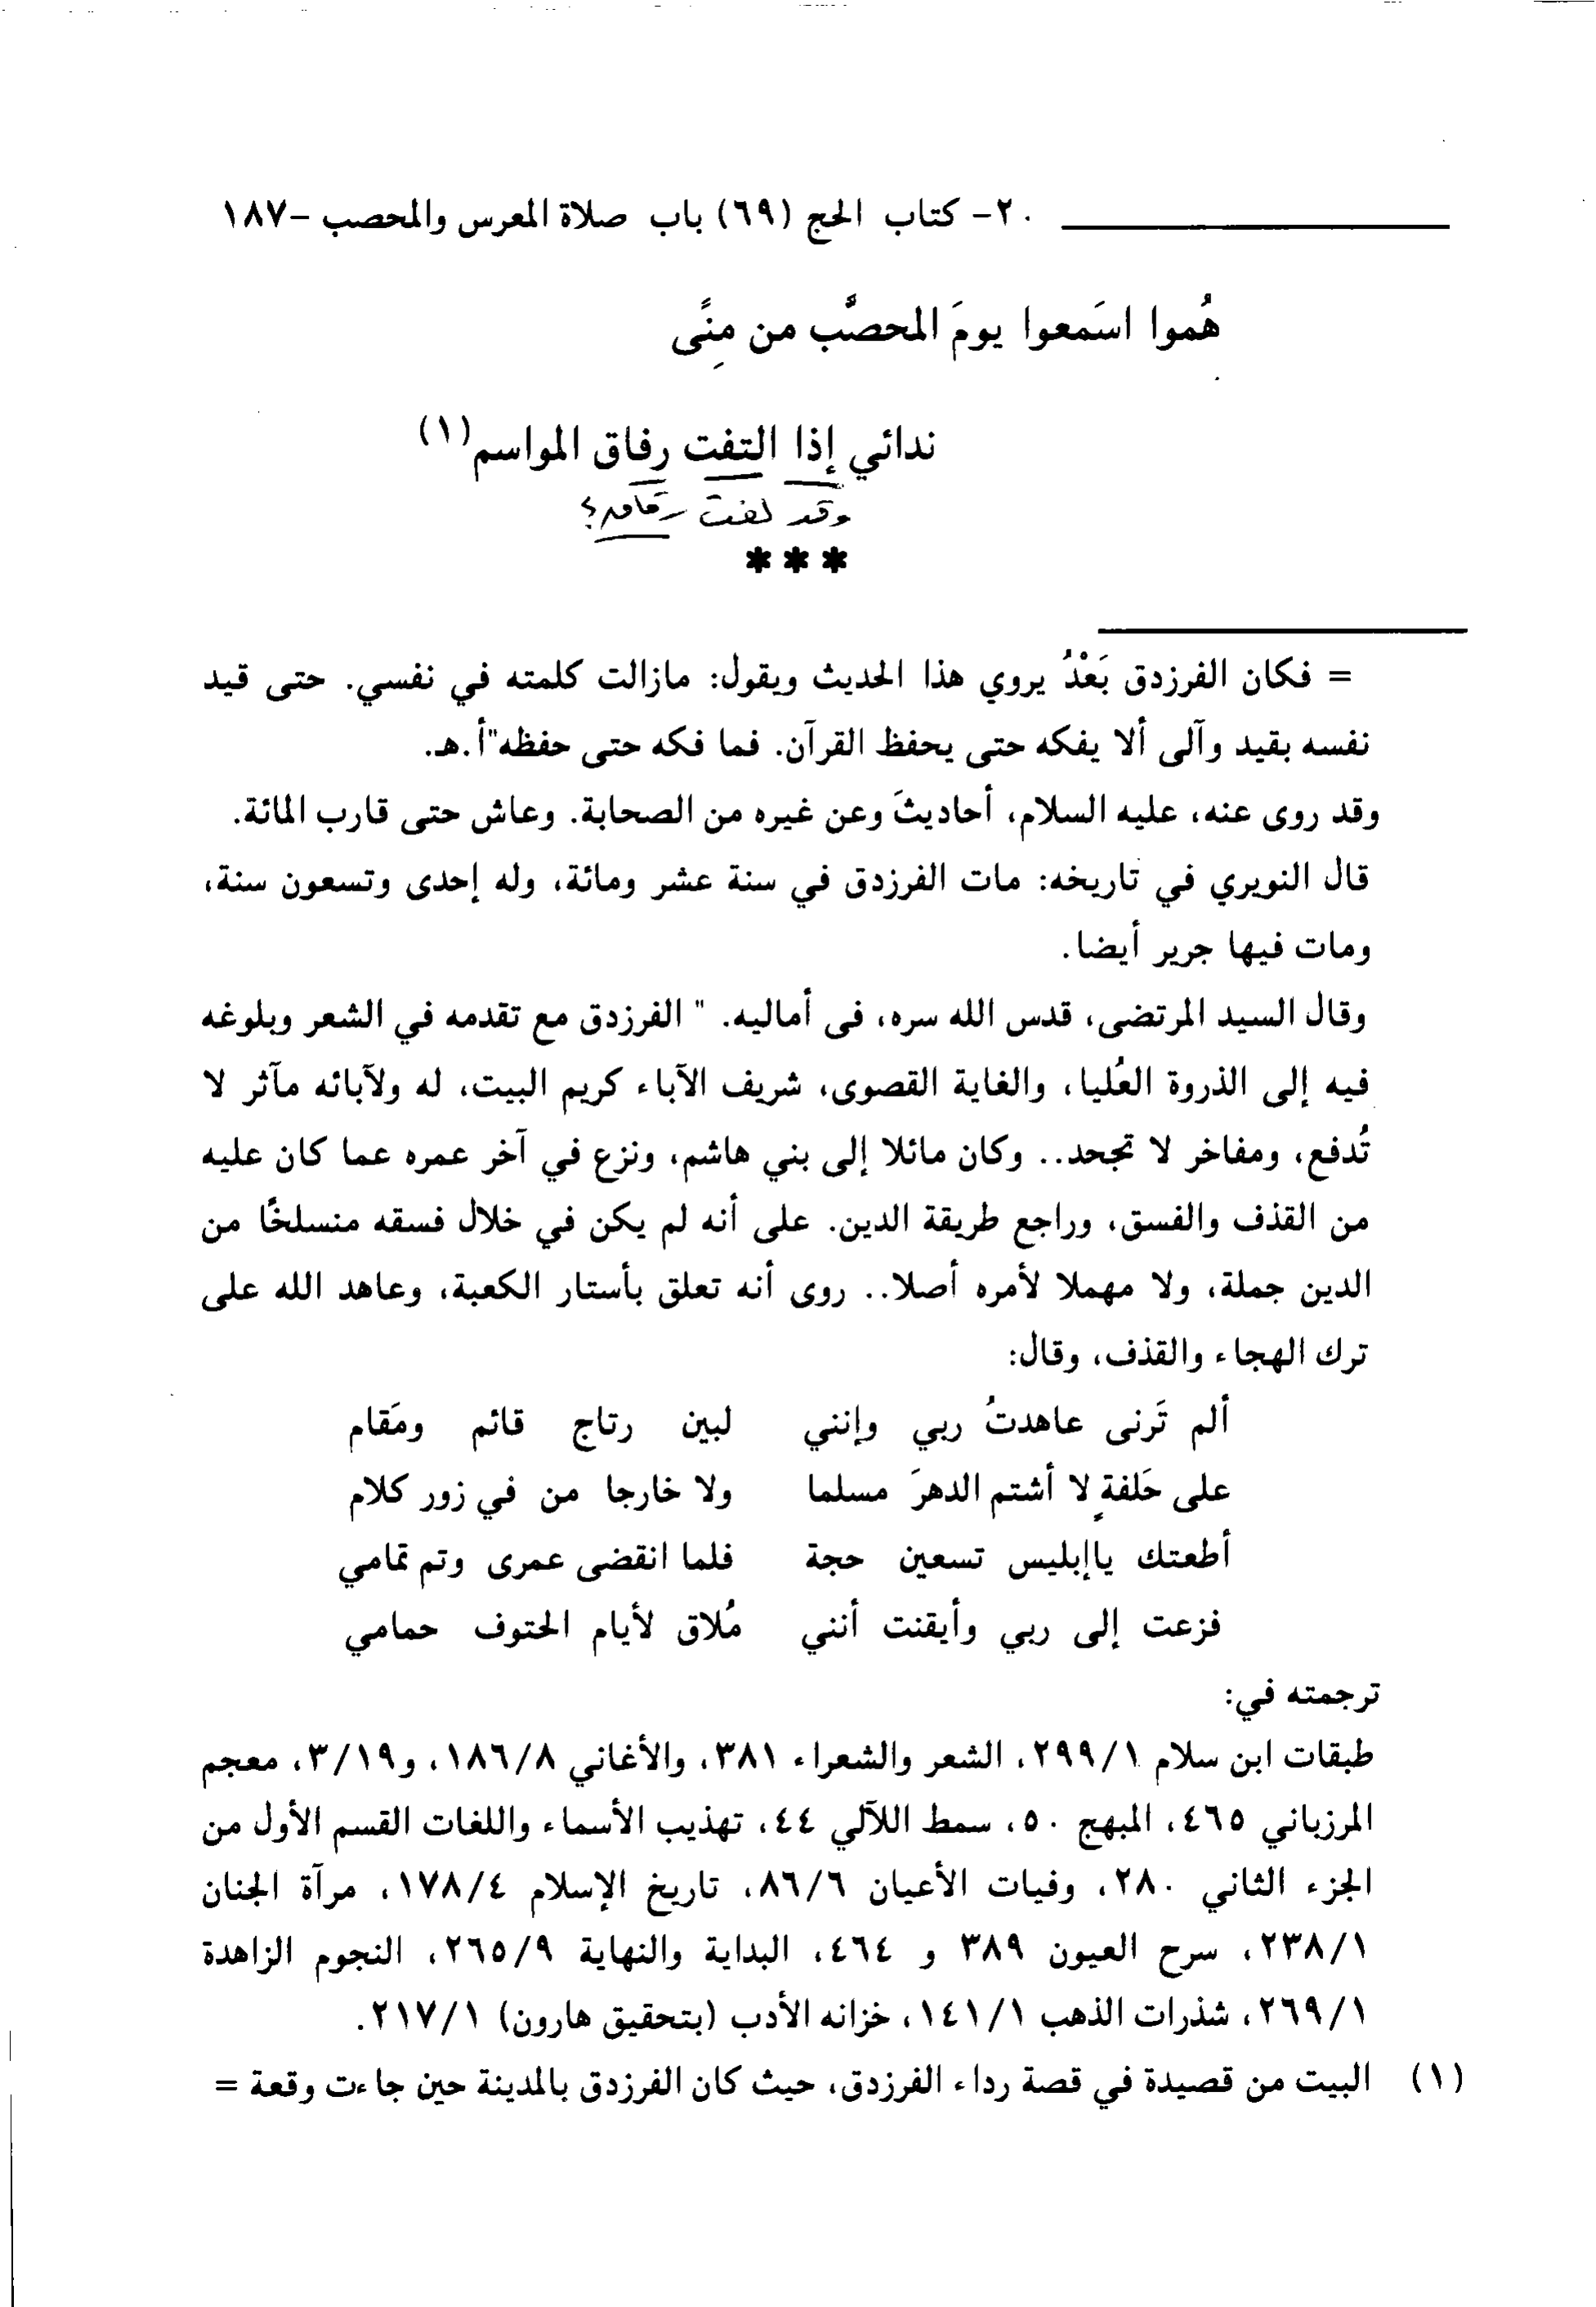 ٢٠- كتاب الحج (٦٩) باب صلاة المعرس والمحصب -١٨٧
هُموا اسَمعوا يومَ المحصَّب من مِنًى
ندائي إذا التفت رفاق المواسم(١)
وقد لفت رفاقه؟
***
= فكان الفرزدق بَعْدُ يروي هذا الحديث ويقول: مازالت كلمته في نفسي. حتى قيد
نفسه بقيد وآلى ألا يفكه حتى يحفظ القرآن. فما فكه حتى حفظه"أ.هـ.
وقد روى عنه، عليه السلام، أحاديثَ وعن غيره من الصحابة. وعاش حتى قارب المائة.
قال النويري في تاريخه: مات الفرزدق في سنة عشر ومائة، وله إحدى وتسعون سنة،
ومات فيها جرير أيضا.
وقال السيد المرتضى، قدس الله سره، فى أماليه. " الفرزدق مع تقدمه في الشعر وبلوغه
فيه إلى الذروة العُليا، والغاية القصوى، شريف الآباء كريم البيت، له ولآبائه مآثر لا
تُدفع، ومفاخر لا تجحد.. وكان مائلا إلى بني هاشم، ونزع في آخر عمره عما كان عليه
من القذف والفسق، وراجع طريقة الدين. على أنه لم يكن في خلال فسقه منسلخًا من
الدين جملة، ولا مهملا لأمره أصلا.. روى أنه تعلق بأستار الكعبة، وعاهد الله على
ترك الهجاء والقذف، وقال:
ألم تَرنى عاهدتُ ربي وإنني لبين رتاج قائم ومَقام
على حَلفةٍ لا أشتم الدهرَ مسلما ولا خارجا من في زور كلام
أطعتك ياإبليس تسعين حجة فلما انقضى عمرى وتم تمامي
فزعت إلى ربي وأيقنت أنني مُلاق لأيام الحتوف حمامي
ترجمته في:
طبقات ابن سلام ٢٩٩/١، الشعر والشعراء ٣٨١، والأغاني ١٨٦/٨، و٣/١٩، معجم
المرزباني ٤٦٥، المبهج ٥٠، سمط اللآلي ٤٤، تهذيب الأسماء واللغات القسم الأول من
الجزء الثاني ٢٨٠، وفيات الأعيان ٨٦/٦، تاريخ الإسلام ١٧٨/٤، مرآة الجنان
٢٣٨/١، سرح العيون ٣٨٩ و ٤٦٤، البداية والنهاية ٢٦٥/٩، النجوم الزاهدة
٢٦٩/١، شذرات الذهب ١٤١/١، خزانه الأدب (بتحقيق هارون) ٢١٧/١.
(١) البيت من قصيدة في قصة رداء الفرزدق، حيث كان الفرزدق بالمدينة حين جاءت وقعة =